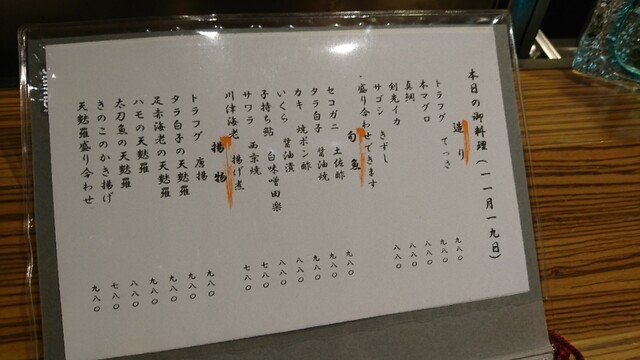 本日の御料理(一一月一九日)
造り
トラフグ てっさ 九八〇
本マグロ 九八〇
真鯛 八八〇
剣先イカ 八八〇
サゴシ きずし 八八〇
・盛り合わせできます
旬魚
セコガニ 土佐酢 九八〇
タラ白子 醤油焼 九八〇
カキ 焼ポン酢 九八〇
いくら 醤油漬 八八〇
子持ち鮎 白味噌田楽 七八〇
サワラ 西京焼 七八〇
川津海老 揚げ煮
揚物
トラフグ 唐揚 九八〇
タラ白子の天麩羅 九八〇
足赤海老の天麩羅 九八〇
ハモの天麩羅 九八〇
太刀魚の天麩羅 八八〇
きのこのかき揚げ 七八〇
天麩羅盛り合わせ 九八〇